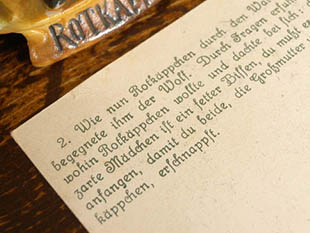 ROTKÄ
2. Wie nun Rotkäppchen durch den Wa
begegnete ihm der Wolf. Durch Fragen erfuh
wohin Rotkäppchen wollte und dachte bei sich: d
zarte Mädchen ist ein fetter Bissen, du mußt e
anfangen, damit du beide, die Großmutter
käppchen, erschnappst.